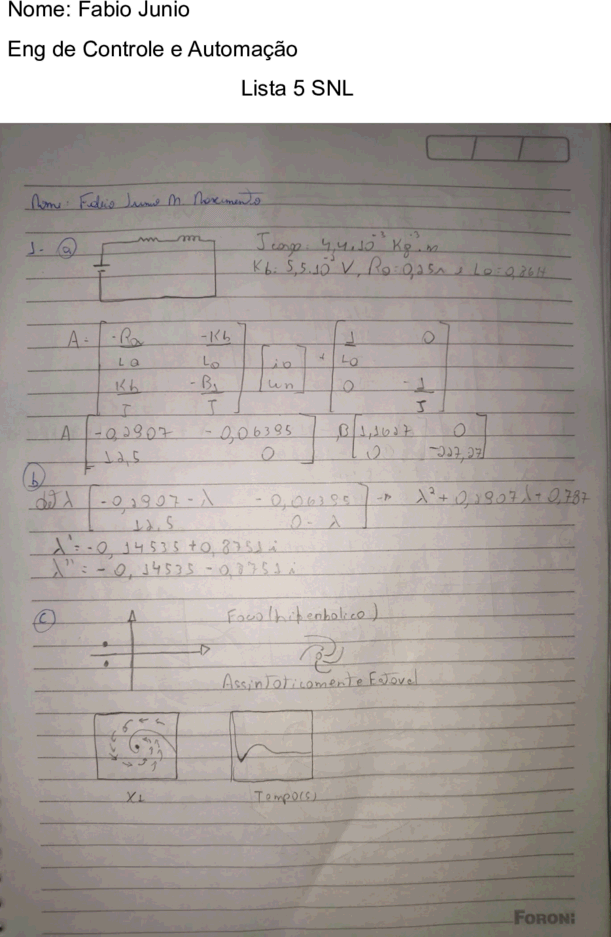 Nome: Fabio Junio
Eng de Controle e Automação
Lista 5 SNL
Nome: Fabio Junio M. Nascimento
1- a
Kb: 5,5.10⁻² V, Ra=0,25Ω
A= [ -Ra/La -Kb/La ; Kb/J -B1/J ] [ ia ; wn ] + [ 1/La 0 ; 0 -1/J ]
A [ -0,2907 -0,06395 ; 12,5 0 ] , B [ 1,1627 0 ; 0 -227,27 ]
b
det λ [ -0,2907-λ -0,06395 ; 12,5 0-λ ] → λ²+0,2907λ+0,787
λ' = -0,14535+0,8751i
λ'' = -0,14535-0,8751i
c
Foco (hiperbolico)
Assintoticamente Estavel
X1
Tempo(s)
FORONI